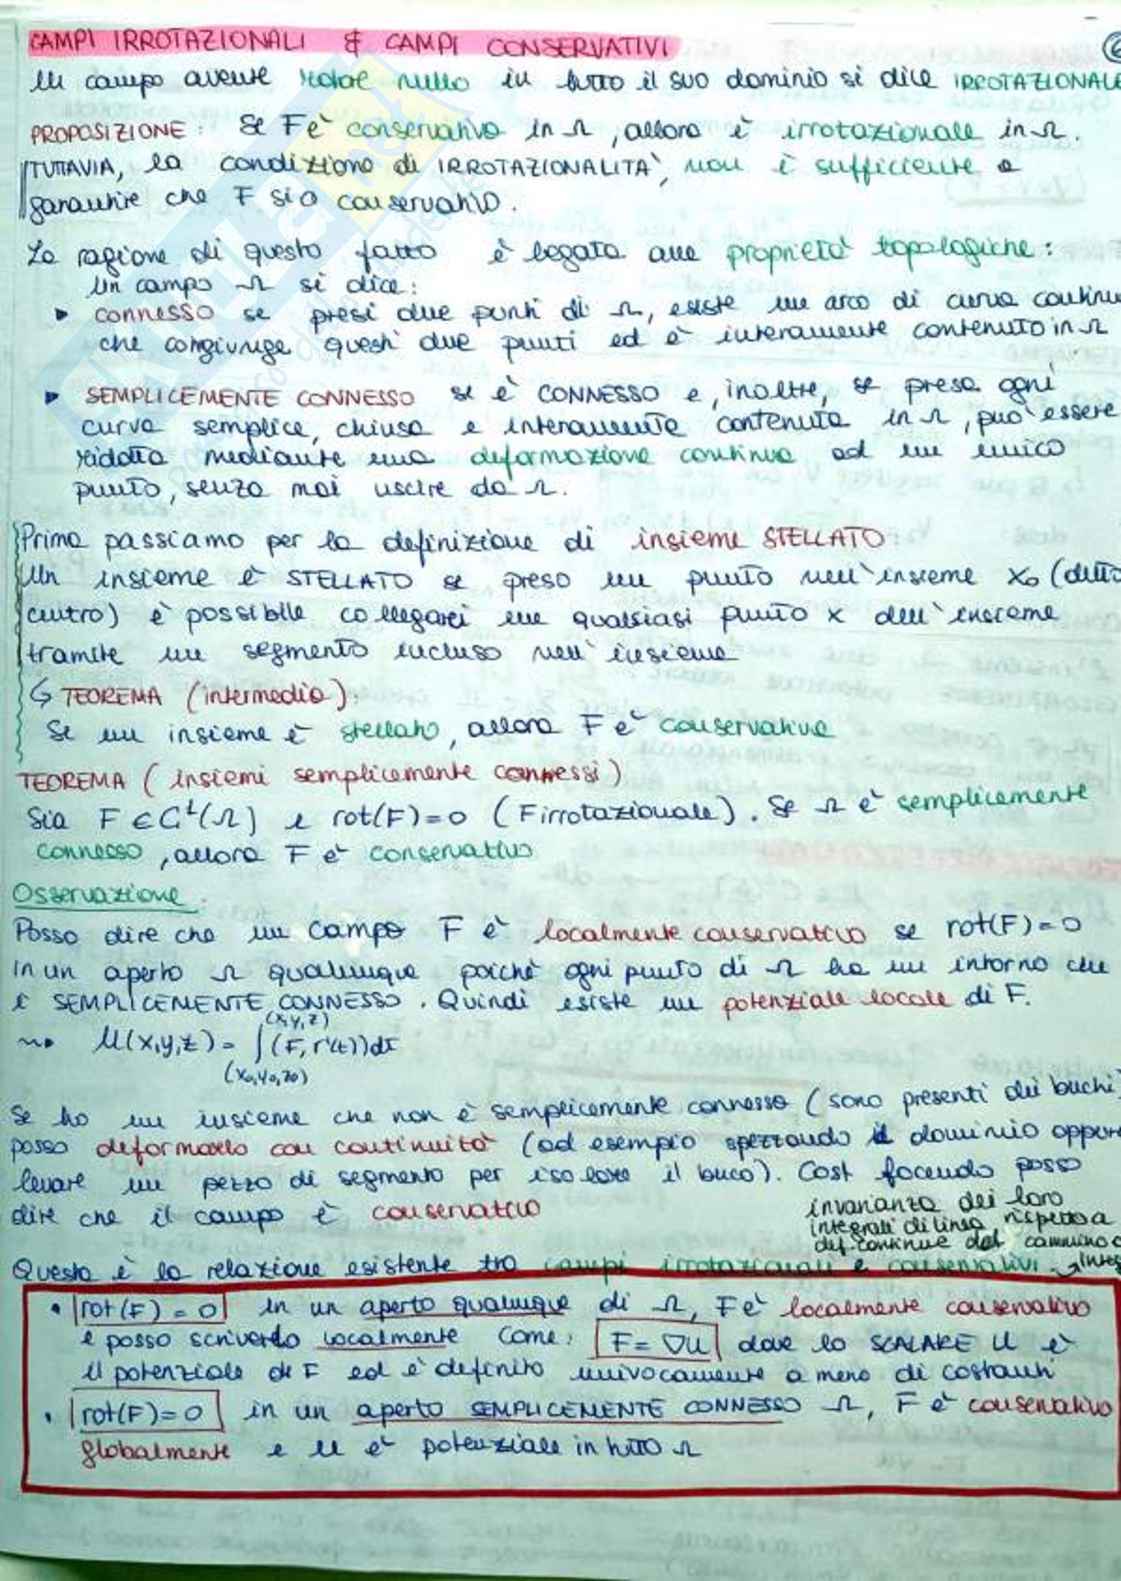 CAMPI IRROTAZIONALI & CAMPI CONSERVATIVI
Un campo avente rotore nullo in tutto il suo dominio si dice IRROTAZIONALE
PROPOSIZIONE: Se F è conservativo in Ω, allora è irrotazionale in Ω.
TUTTAVIA, la condizione di IRROTAZIONALITA', non è sufficiente a
garantire che F sia conservativo.
La ragione di questo fatto è legata alle proprietà topologiche:
Un campo Ω si dice:
▸ CONNESSO se presi due punti di Ω, esiste un arco di curva continua
che congiunge questi due punti ed è interamente contenuto in Ω
▸ SEMPLICEMENTE CONNESSO se è CONNESSO e, inoltre, se presa ogni
curva semplice, chiusa e interamente contenuta in Ω, può essere
ridotta mediante una deformazione continua ad un unico
punto, senza mai uscire da Ω.
Prima passiamo per la definizione di insieme STELLATO:
Un insieme è STELLATO se preso un punto nell'insieme x₀ (detto
centro) è possibile collegarci un qualsiasi punto x dell'insieme
tramite un segmento incluso nell'insieme
↳ TEOREMA (intermedio):
Se un insieme è stellato, allora F è conservativo
TEOREMA (insiemi semplicemente connessi)
Sia F ∈ C¹(Ω) e rot(F)=0 (F irrotazionale). Se Ω è semplicemente
connesso, allora F è conservativo
Osservazione:
Posso dire che un campo F è localmente conservativo se rot(F)=0
in un aperto Ω qualunque poichè ogni punto di Ω ha un intorno che
è SEMPLICEMENTE CONNESSO. Quindi esiste un potenziale locale di F.
(x,y,z)
⇝ U(x,y,z) = ∫(F, r'(t))dt
(x₀,y₀,z₀)
Se ho un insieme che non è semplicemente connesso (sono presenti dei buchi)
posso deformarlo con continuità (ad esempio spezzando il dominio oppure
levare un pezzo di segmento per isolare il buco). Così facendo posso
dire che il campo è conservativo
invarianza dei loro
integrali di linea rispetto a
def. continue del cammino
Questa è la relazione esistente tra campi irrotazionali e conservativi
• rot(F) = 0 in un aperto qualunque di Ω, F è localmente conservativo
e posso scriverlo localmente come: F = ∇U dove lo SCALARE U è
il potenziale di F ed è definito univocamente a meno di costanti
• rot(F)=0 in un aperto SEMPLICEMENTE CONNESSO Ω, F è conservativo
globalmente e U è potenziale in tutto Ω